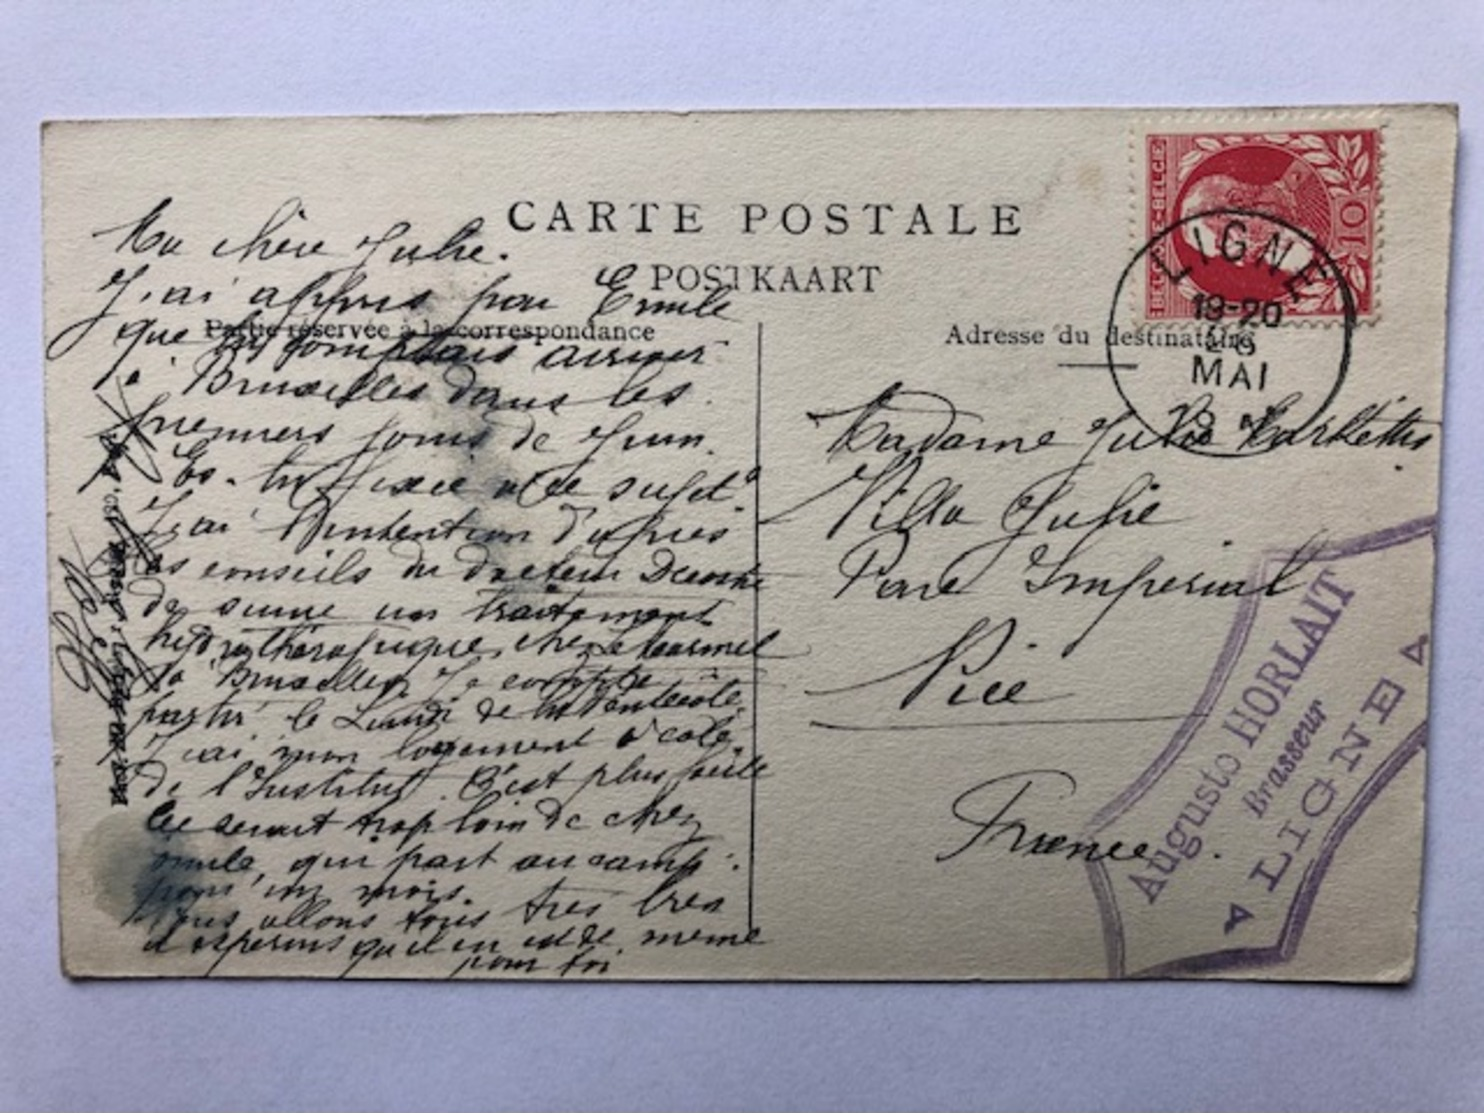 CARTE POSTALE
POSTKAART
Partie réservée à la correspondance
Adresse du destinataire
Ma chère Julie.
J'ai appris par Emile
que tu comptais arriver
à Bruxelles dans les
premiers jours de Juin.
Es-tu fixée à ce sujet
J'ai l'intention d'après
les conseils du docteur
de suivre un traitement
hydrothérapique chez
à Bruxelles. Je compte
partir le Lundi de la Pentecôte.
J'ai mon logement à côté
de l'Institut. C'est plus facile
Ce serait trop loin de chez
Emile, qui part au camp
pour un mois.
Nous allons tous très bien
et espérons qu'il en est de même
pour toi
Madame Julie
Villa Julie
Parc Imperial
Nice
France.
BELGIE-BELGIQUE
10
LIGNE
19-20
MAI
Auguste HORLAIT
Brasseur
LIGNE